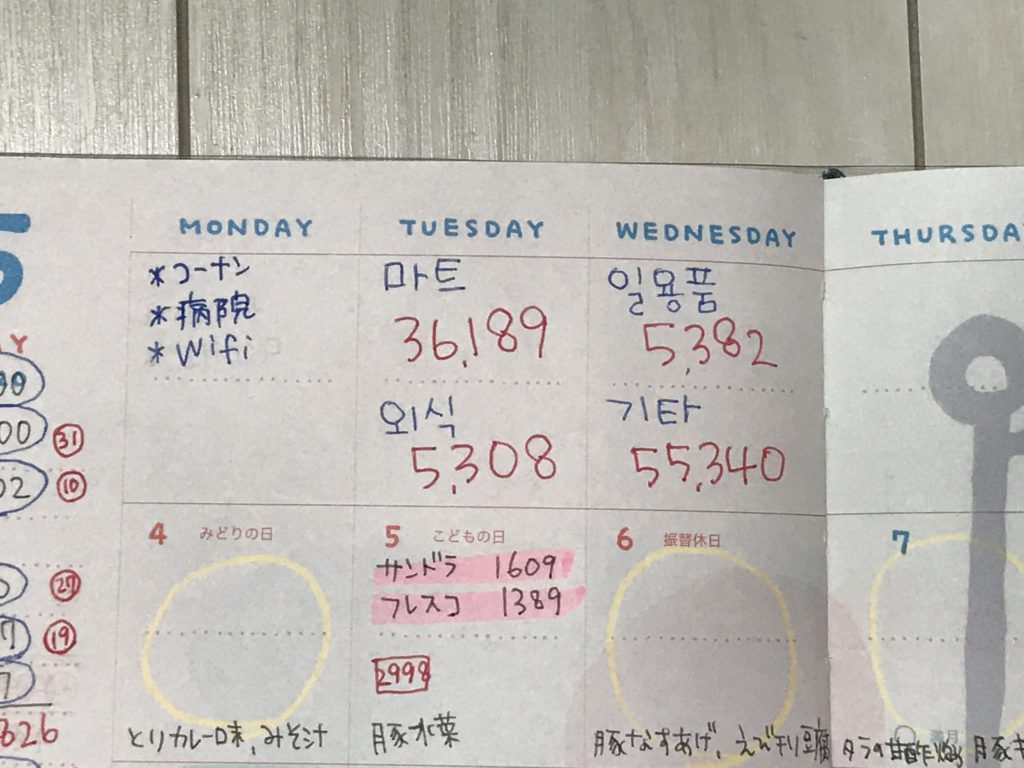 5
MONDAY
TUESDAY
WEDNESDAY
THURSDA
*コーナン
*病院
*Wifi
마트
36,189
일용품
5,382
외식
5,308
기타
55,340
00
31
02
10
29
7
19
7
826
4 みどりの日
5 こどもの日
6 振替休日
7
サンドラ 1609
フレスコ 1389
2998
とりカレー味、みそ汁
豚水菜
豚なすあげ、えびチリ豆腐
タラの甘酢
豚キ
満月